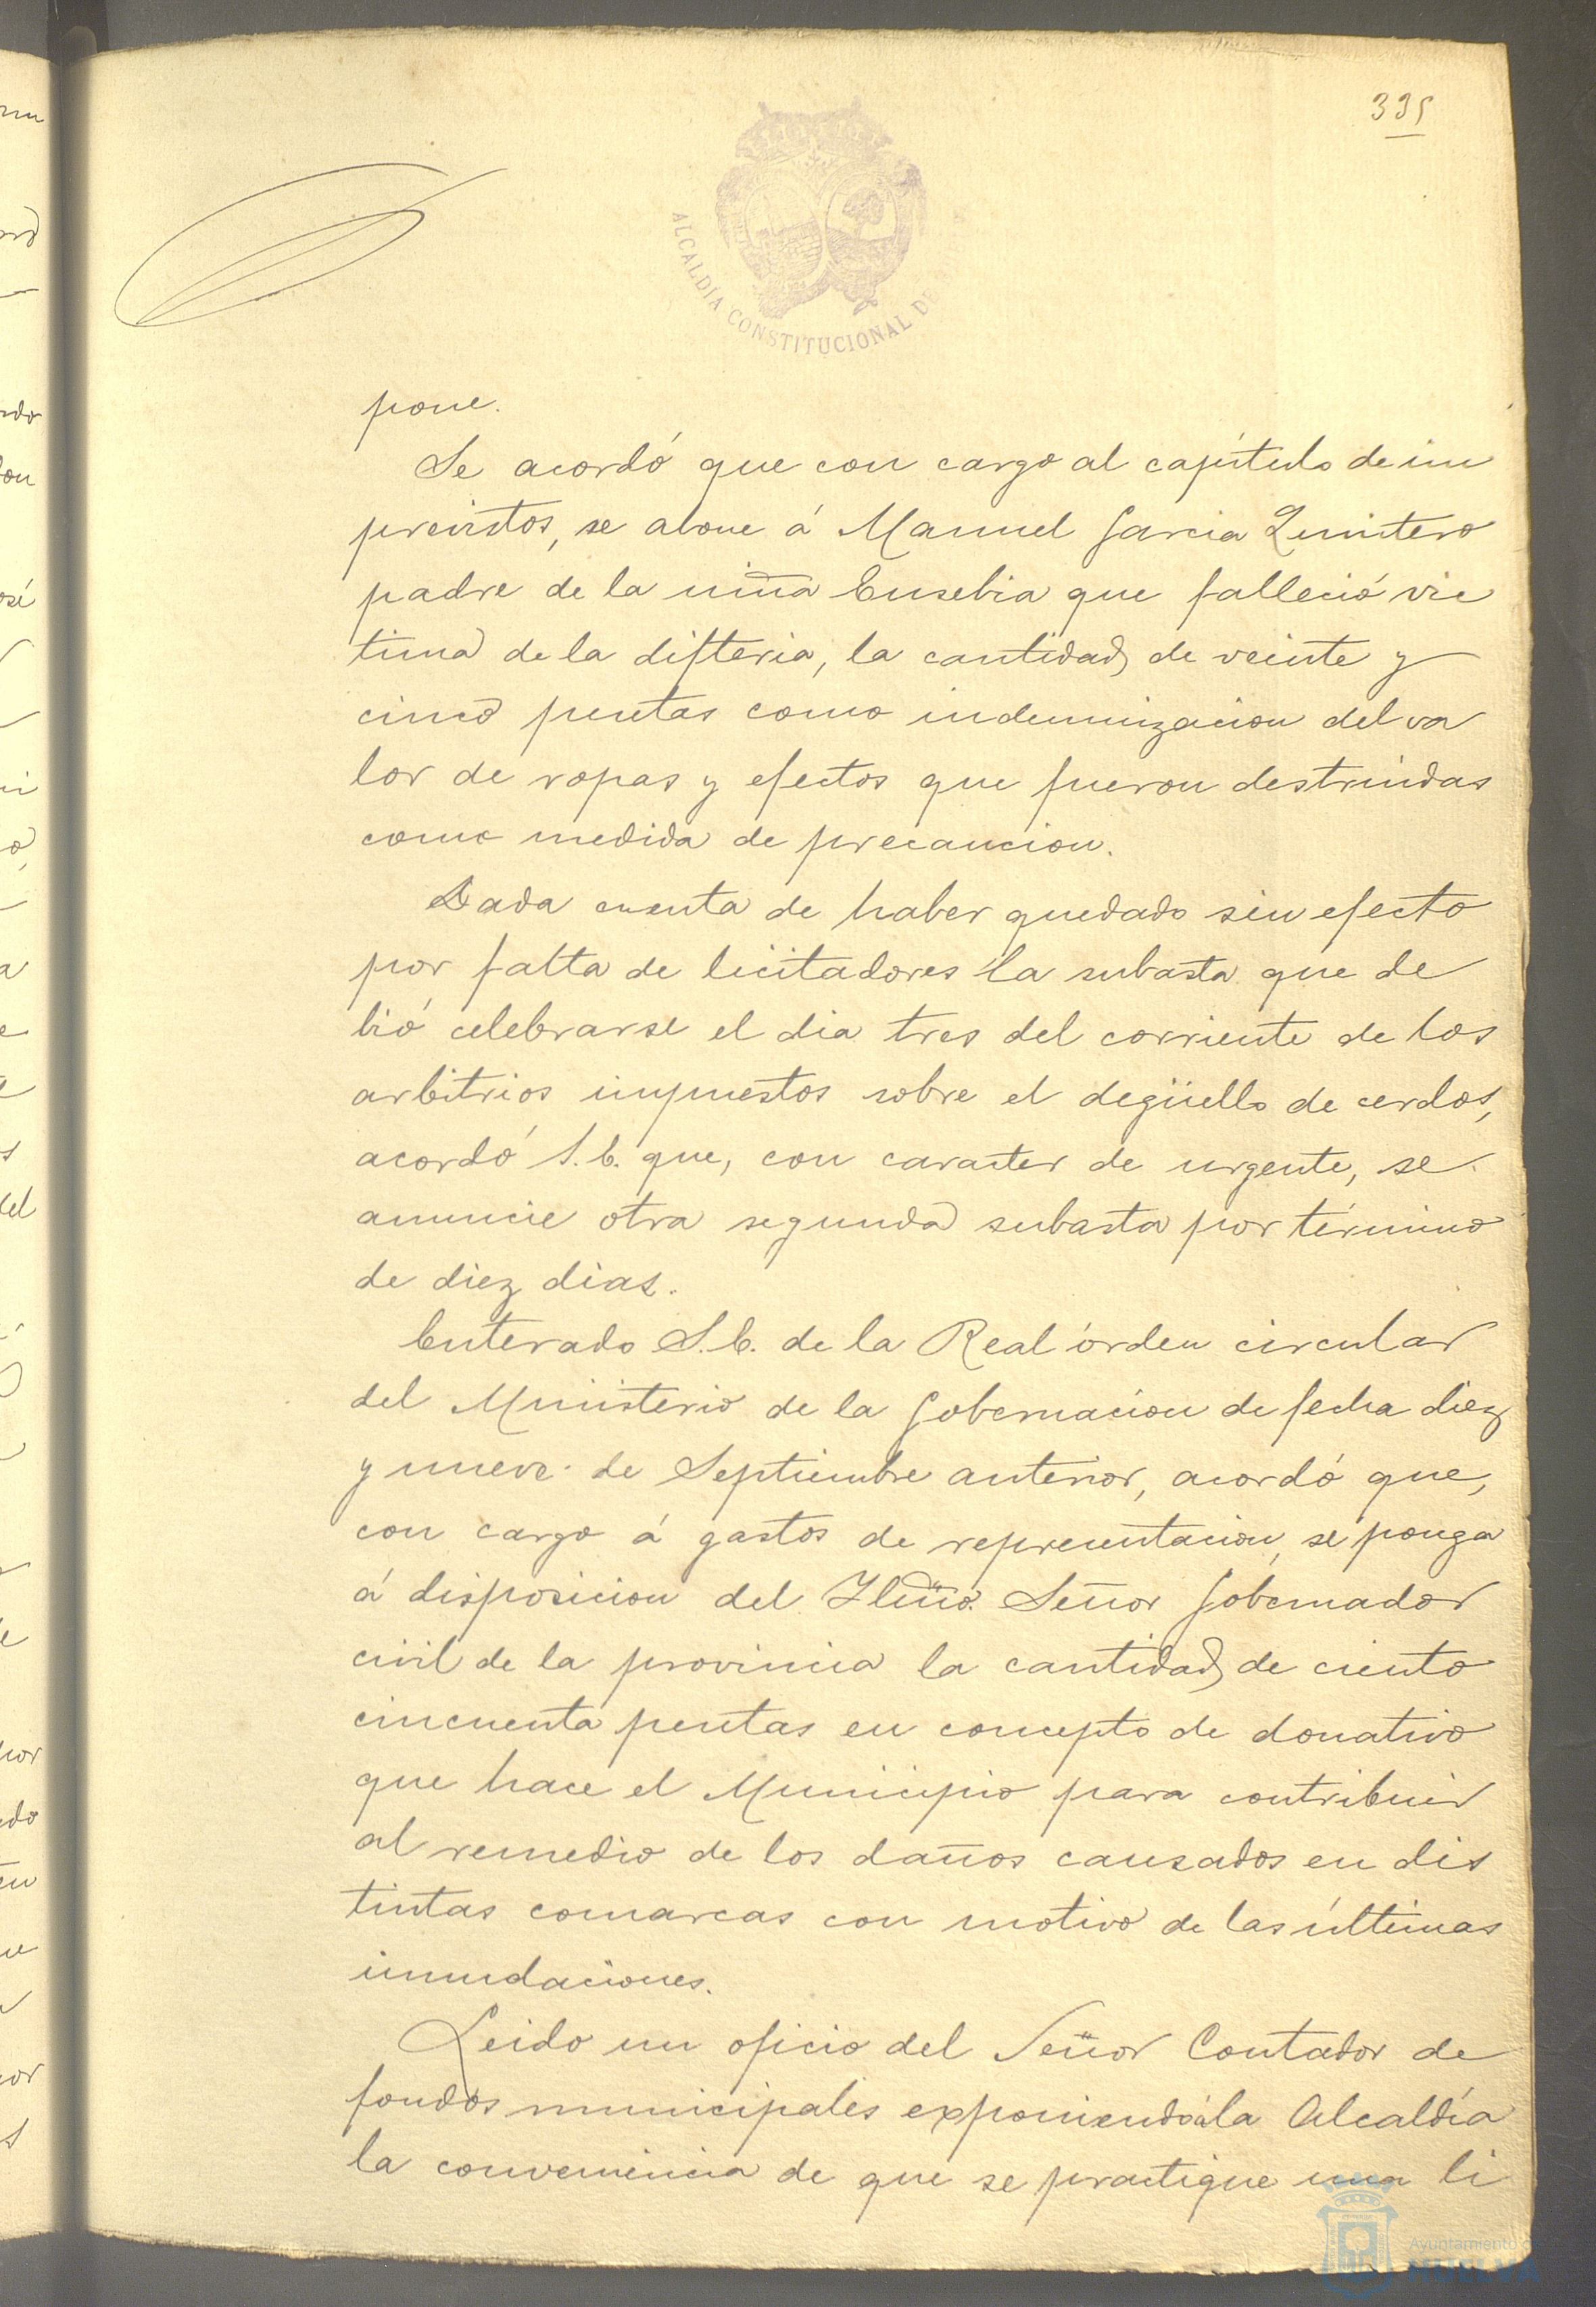 335
ALCALDÍA CONSTITUCIONAL DE
pone.
Se acordó que con cargo al capítulo de im
previstos, se abone á Manuel Garcia Quintero
padre de la niña Eusebia que falleció vic
tima de la difteria, la cantidad de veinte y
cinco pesetas como indemnizacion del va
lor de ropas y efectos que fueron destruidas
como medida de precaucion.
Dada cuenta de haber quedado sin efecto
por falta de licitadores la subasta que de
bió celebrarse el dia tres del corriente de los
arbitrios impuestos sobre el degüello de cerdos,
acordó S.E. que, con caracter de urgente, se
anuncie otra segunda subasta por término
de diez dias.
Enterado S.E. de la Real órden circular
del Ministerio de la Gobernacion de fecha diez
y nueve de Septiembre anterior, acordó que,
con cargo á gastos de representacion, se ponga
á disposicion del Iltmo. Señor Gobernador
civil de la provincia la cantidad de ciento
cincuenta pesetas en concepto de donativo
que hace el Municipio para contribuir
al remedio de los daños causados en dis
tintas comarcas con motivo de las últimas
inundaciones.
Leido un oficio del Señor Contador de
fondos municipales exponiendo á la Alcaldía
la conveniencia de que se practique una li
Ayuntamiento de
HUELVA